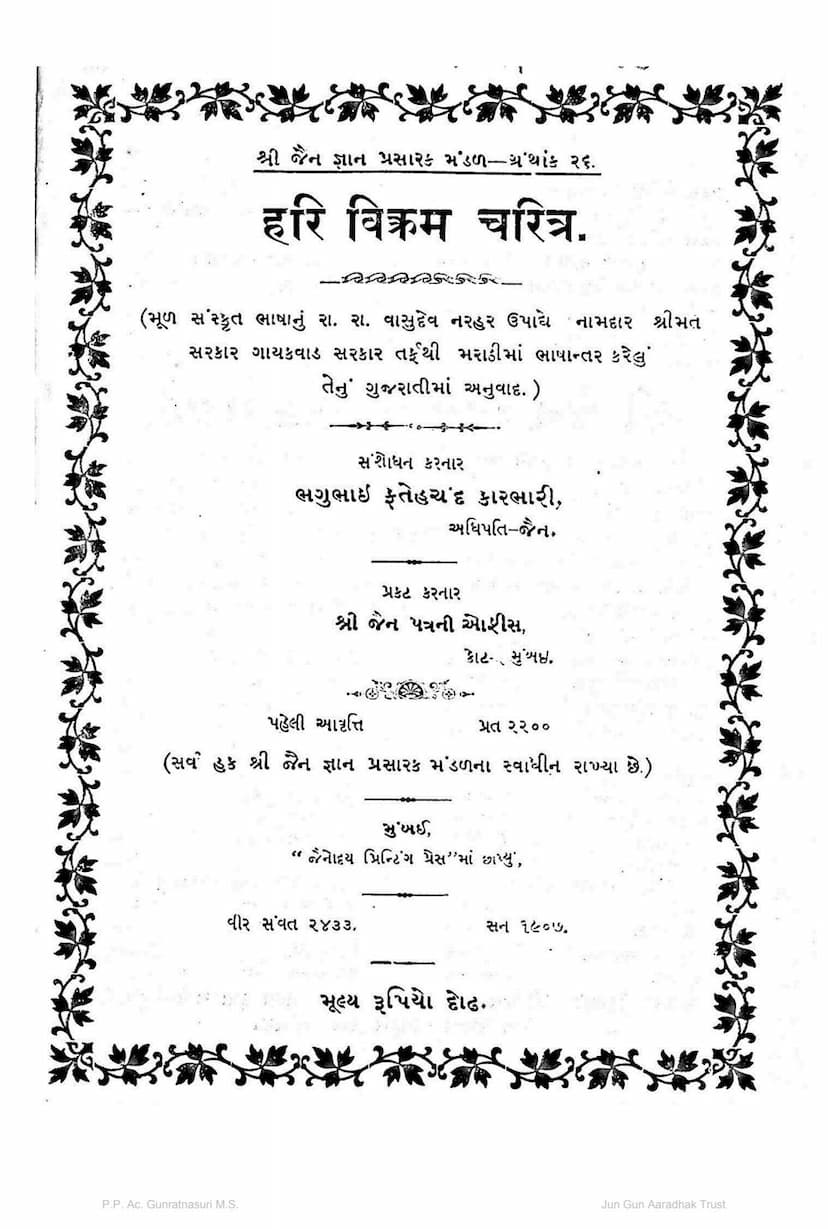 શ્રી જૈન જ્ઞાન પ્રસારક મંડળ—ગ્રંથાંક ૨૬.
હરિ વિક્રમ ચરિત્ર.
(મૂળ સંસ્કૃત ભાષાનું રા. રા. વાસુદેવ નરહર ઉપાધ્યે નામદાર શ્રીમત
સરકાર ગાયકવાડ સરકાર તર્ફથી મરાઠીમાં ભાષાન્તર કરેલું
તેનું ગુજરાતીમાં અનુવાદ.)
સંશોધન કરનાર
ભગુભાઇ ફતેહચંદ કારભારી,
અધિપતિ—જૈન.
પ્રકટ કરનાર
શ્રી જૈન પત્રની ઓફીસ,
કોટ— મુંબઇ.
પહેલી આવૃત્તિ પ્રત ૨૨૦૦
(સર્વ હક શ્રી જૈન જ્ઞાન પ્રસારક મંડળના સ્વાધીન રાખ્યા છે.)
મુંબઈ,
“ જૈનોદય પ્રિન્ટિંગ પ્રેસ”માં છાપ્યું,
વીર સંવત ૨૪૩૩. સન ૧૯૦૭.
મૂલ્ય રૂપિયો દોઢ.
P.P. Ac. Gunratnasuri M.S. Jun Gun Aaradhak Trust